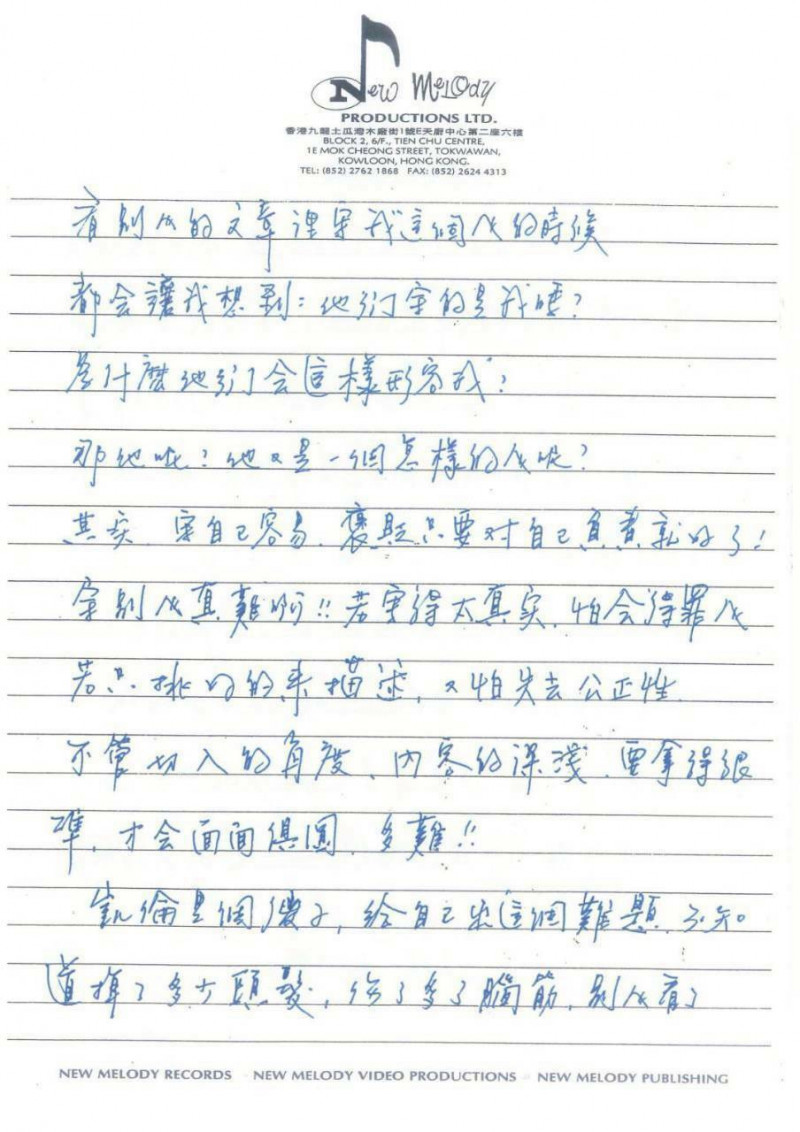 New Melody
PRODUCTIONS LTD.
香港九龍土瓜灣木廠街1號E天廚中心第二座六樓
BLOCK 2, 6/F., TIEN CHU CENTRE,
1E MOK CHEONG STREET, TOKWAWAN,
KOWLOON, HONG KONG.
TEL: (852) 2762 1868 FAX: (852) 2624 4313
看别人的文章裡寫我這個人的時候
都会讓我想到：他们写的是我嗎？
為什麼他们会這樣形容我？
那他呢？他又是一個怎樣的人呢？
其实，寫自己容易，褒貶只要对自己負責就好了！
写别人真難啊!!若寫得太真实，怕会得罪人
若只挑好的来描述，又怕失去公正性
不管切入的角度、內容的深淺，要拿得很
準，才会面面俱圓，多難!!
凱倫是個傻子，给自己出這個難題，不知
道掉了多少頭髮，伤了多少腦筋，别人看了
NEW MELODY RECORDS NEW MELODY VIDEO PRODUCTIONS NEW MELODY PUBLISHING